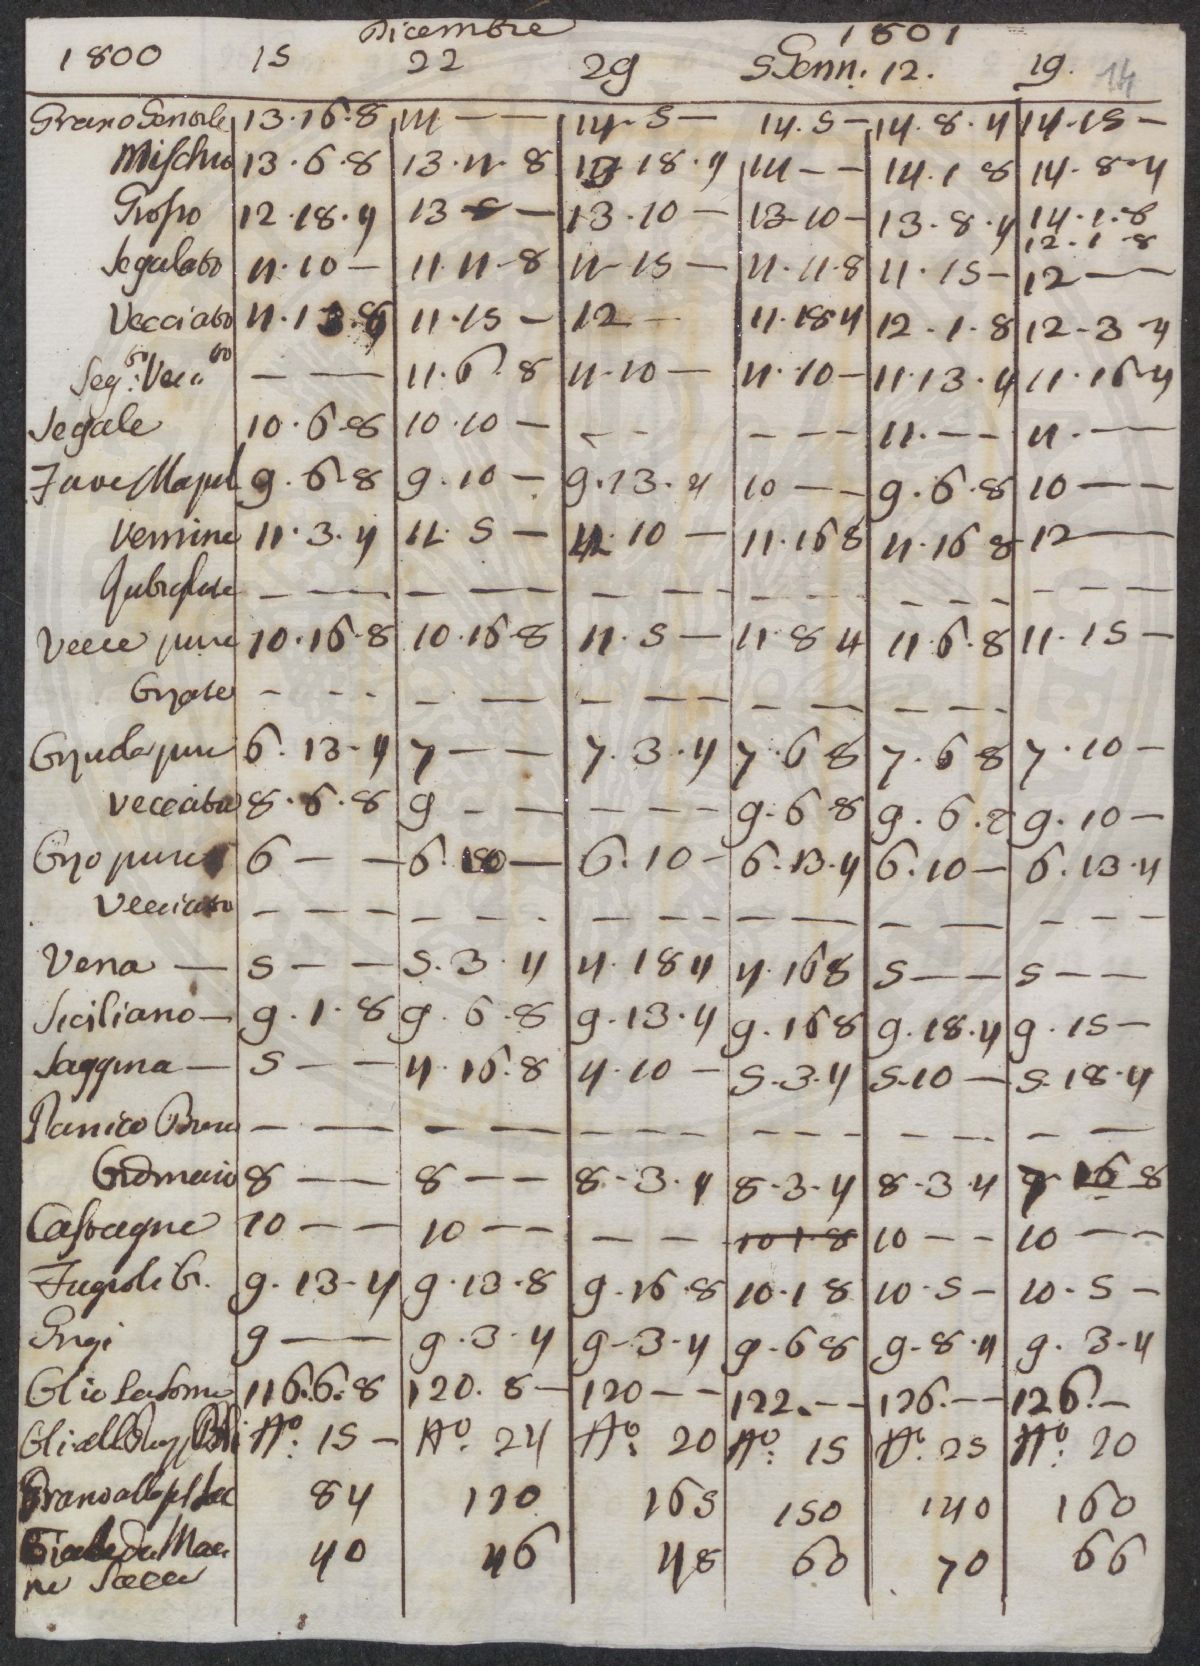 Dicembre 1801
1800 15 22 29 5 Genn. 12. 19. 14
Grano Gentile 13.16.8 14 — — 14. 5 — 14. 5 — 14. 8. 4 14.15 —
Mischio 13. 6. 8 13. 11. 8 13 18. 4 14 — — 14. 1 8 14. 8. 4
Grosso 12. 18. 4 13 5 — 13. 10 — 13. 10 — 13. 8. 4 14. 1. 8
12. 1 8
Segalato 11. 10 — 11. 11. 8 11. 15 — 11. 11. 8 11. 15 — 12 —
Vecciato 11. 13. 8 11. 15 — 12 — 11. 18 4 12. 1. 8 12. 3 4
Seg.to Vecc.to — — 11. 6. 8 11. 10 — 11. 10 — 11. 13. 4 11. 16 4
Segale 10. 6. 8 10. 10 — — — — — — — 11. — — 11. —
Fave 9. 6. 8 9. 10 — 9. 13. 4 10 — — 9. 6. 8 10 — —
Vernine 11. 3. 4 11. 5 — 11. 10 — 11. 16 8 11. 16 8 12 —
— — — — — — — — — — — — — — — — —
Vecce pure 10. 16. 8 10. 16. 8 11. 5 — 11. 8 4 11. 6. 8 11. 15 —
Orzate — — — — — — — — — — — — — —
pure 6. 13. 4 7 — — 7. 3. 4 7. 6 8 7. 6 8 7. 10 —
Vecciata 8. 6. 8 9 — — — — — 9. 6 8 9. 6. 8 9. 10 —
Orzo puro 6 — — 6. 10 — 6. 10 — 6. 13. 4 6. 10 — 6. 13. 4
Vecciato — — — — — — — — — — — — — — — —
Vena — 5 — — 5. 3. 4 4. 18 4 4. 16 8 5 — — 5 — —
Siciliano — 9. 1. 8 9. 6. 8 9. 13. 4 9. 16 8 9. 18. 4 9. 15 —
Saggina — 5 — — 4. 16. 8 4. 10 — 5. 3. 4 5. 10 — 5. 18. 4
Panico — — — — — — — — — — — — — — —
8 — — 8 — — 8. 3. 4 8. 3. 4 8. 3. 4 7 16 8
Castagne 10 — — 10 — — — — 10 1 8 10 — — 10 — —
Fagioli 9. 13. 4 9. 13. 8 9. 16. 8 10. 1 8 10. 5 — 10. 5 —
9 — 9. 3. 4 9. 3. 4 9. 6 8 9. 8. 4 9. 3. 4
Olio La Soma 116. 6. 8 120. 8 — 120 — — 122. — — 126. — — 126. —
15 — 24 20 15 25 20
Grano 84 120 165 150 140 160
40 46 48 60 70 66